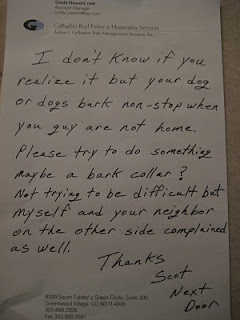 Account Manager
Gallagher Real Estate & Hospitality Services
Arthur J. Gallagher Risk Management Services, Inc.
I don't know if you
realize it but your dog
or dogs bark non-stop when
you guy are not home.
Please try to do something
maybe a bark collar?
Not trying to be difficult but
myself and your neighbor
on the other side complained
as well.
Thanks
Scot
Next
Door
Greenwood Village, CO